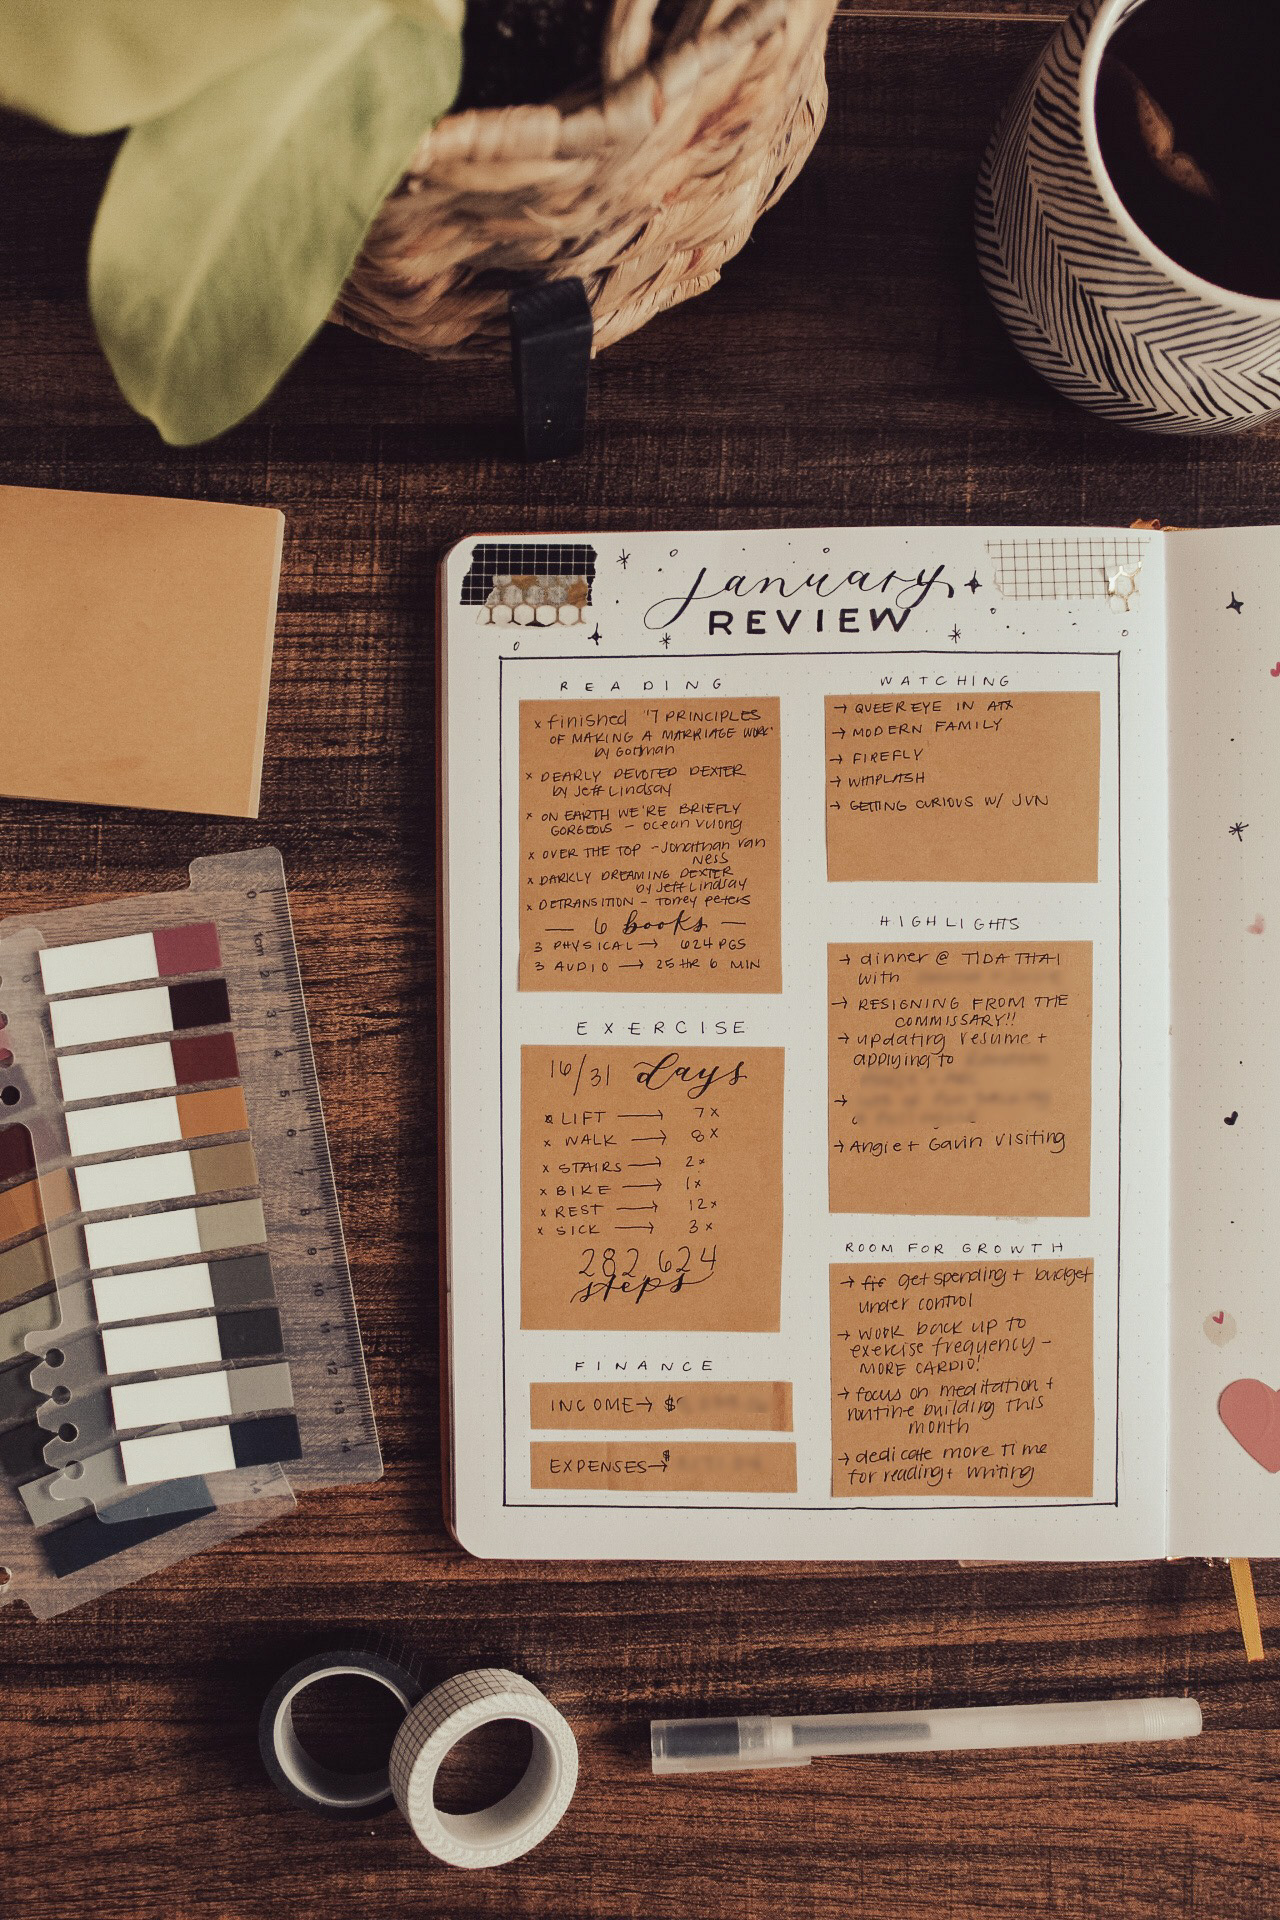 january
REVIEW
READING
x finished "7 PRINCIPLES
OF MAKING A MARRIAGE WORK"
by Gottman
x DEARLY DEVOTED DEXTER
by Jeff Lindsay
x ON EARTH WE'RE BRIEFLY
GORGEOUS - ocean vuong
x OVER THE TOP - Jonathan van
ness
x DARKLY DREAMING DEXTER
by Jeff Lindsay
x DETRANSITION - Torrey peters
— 6 books —
3 PHYSICAL → 624 PGS
3 AUDIO → 25 HR 6 MIN
EXERCISE
16/31 days
x LIFT → 7x
x WALK → 8x
x STAIRS → 2x
x BIKE → 1x
x REST → 12x
x SICK → 3x
282,624
steps
FINANCE
INCOME → $
EXPENSES → $
WATCHING
→ QUEER EYE IN ATX
→ MODERN FAMILY
→ FIREFLY
→ WHIPLASH
→ GETTING CURIOUS W/ JVN
HIGHLIGHTS
→ dinner @ TIDA THAI
with
→ RESIGNING FROM THE
COMMISSARY!!
→ updating resume +
applying to
→
→ Angie + Gavin visiting
ROOM FOR GROWTH
→ get spending + budget
under control
→ WORK back up to
exercise frequency -
MORE CARDIO!
→ focus on meditation +
routine building this
month
→ dedicate more time
for reading + writing
0
1cm
2
3
4
5
6
7
8
9
10
11
12
13
14